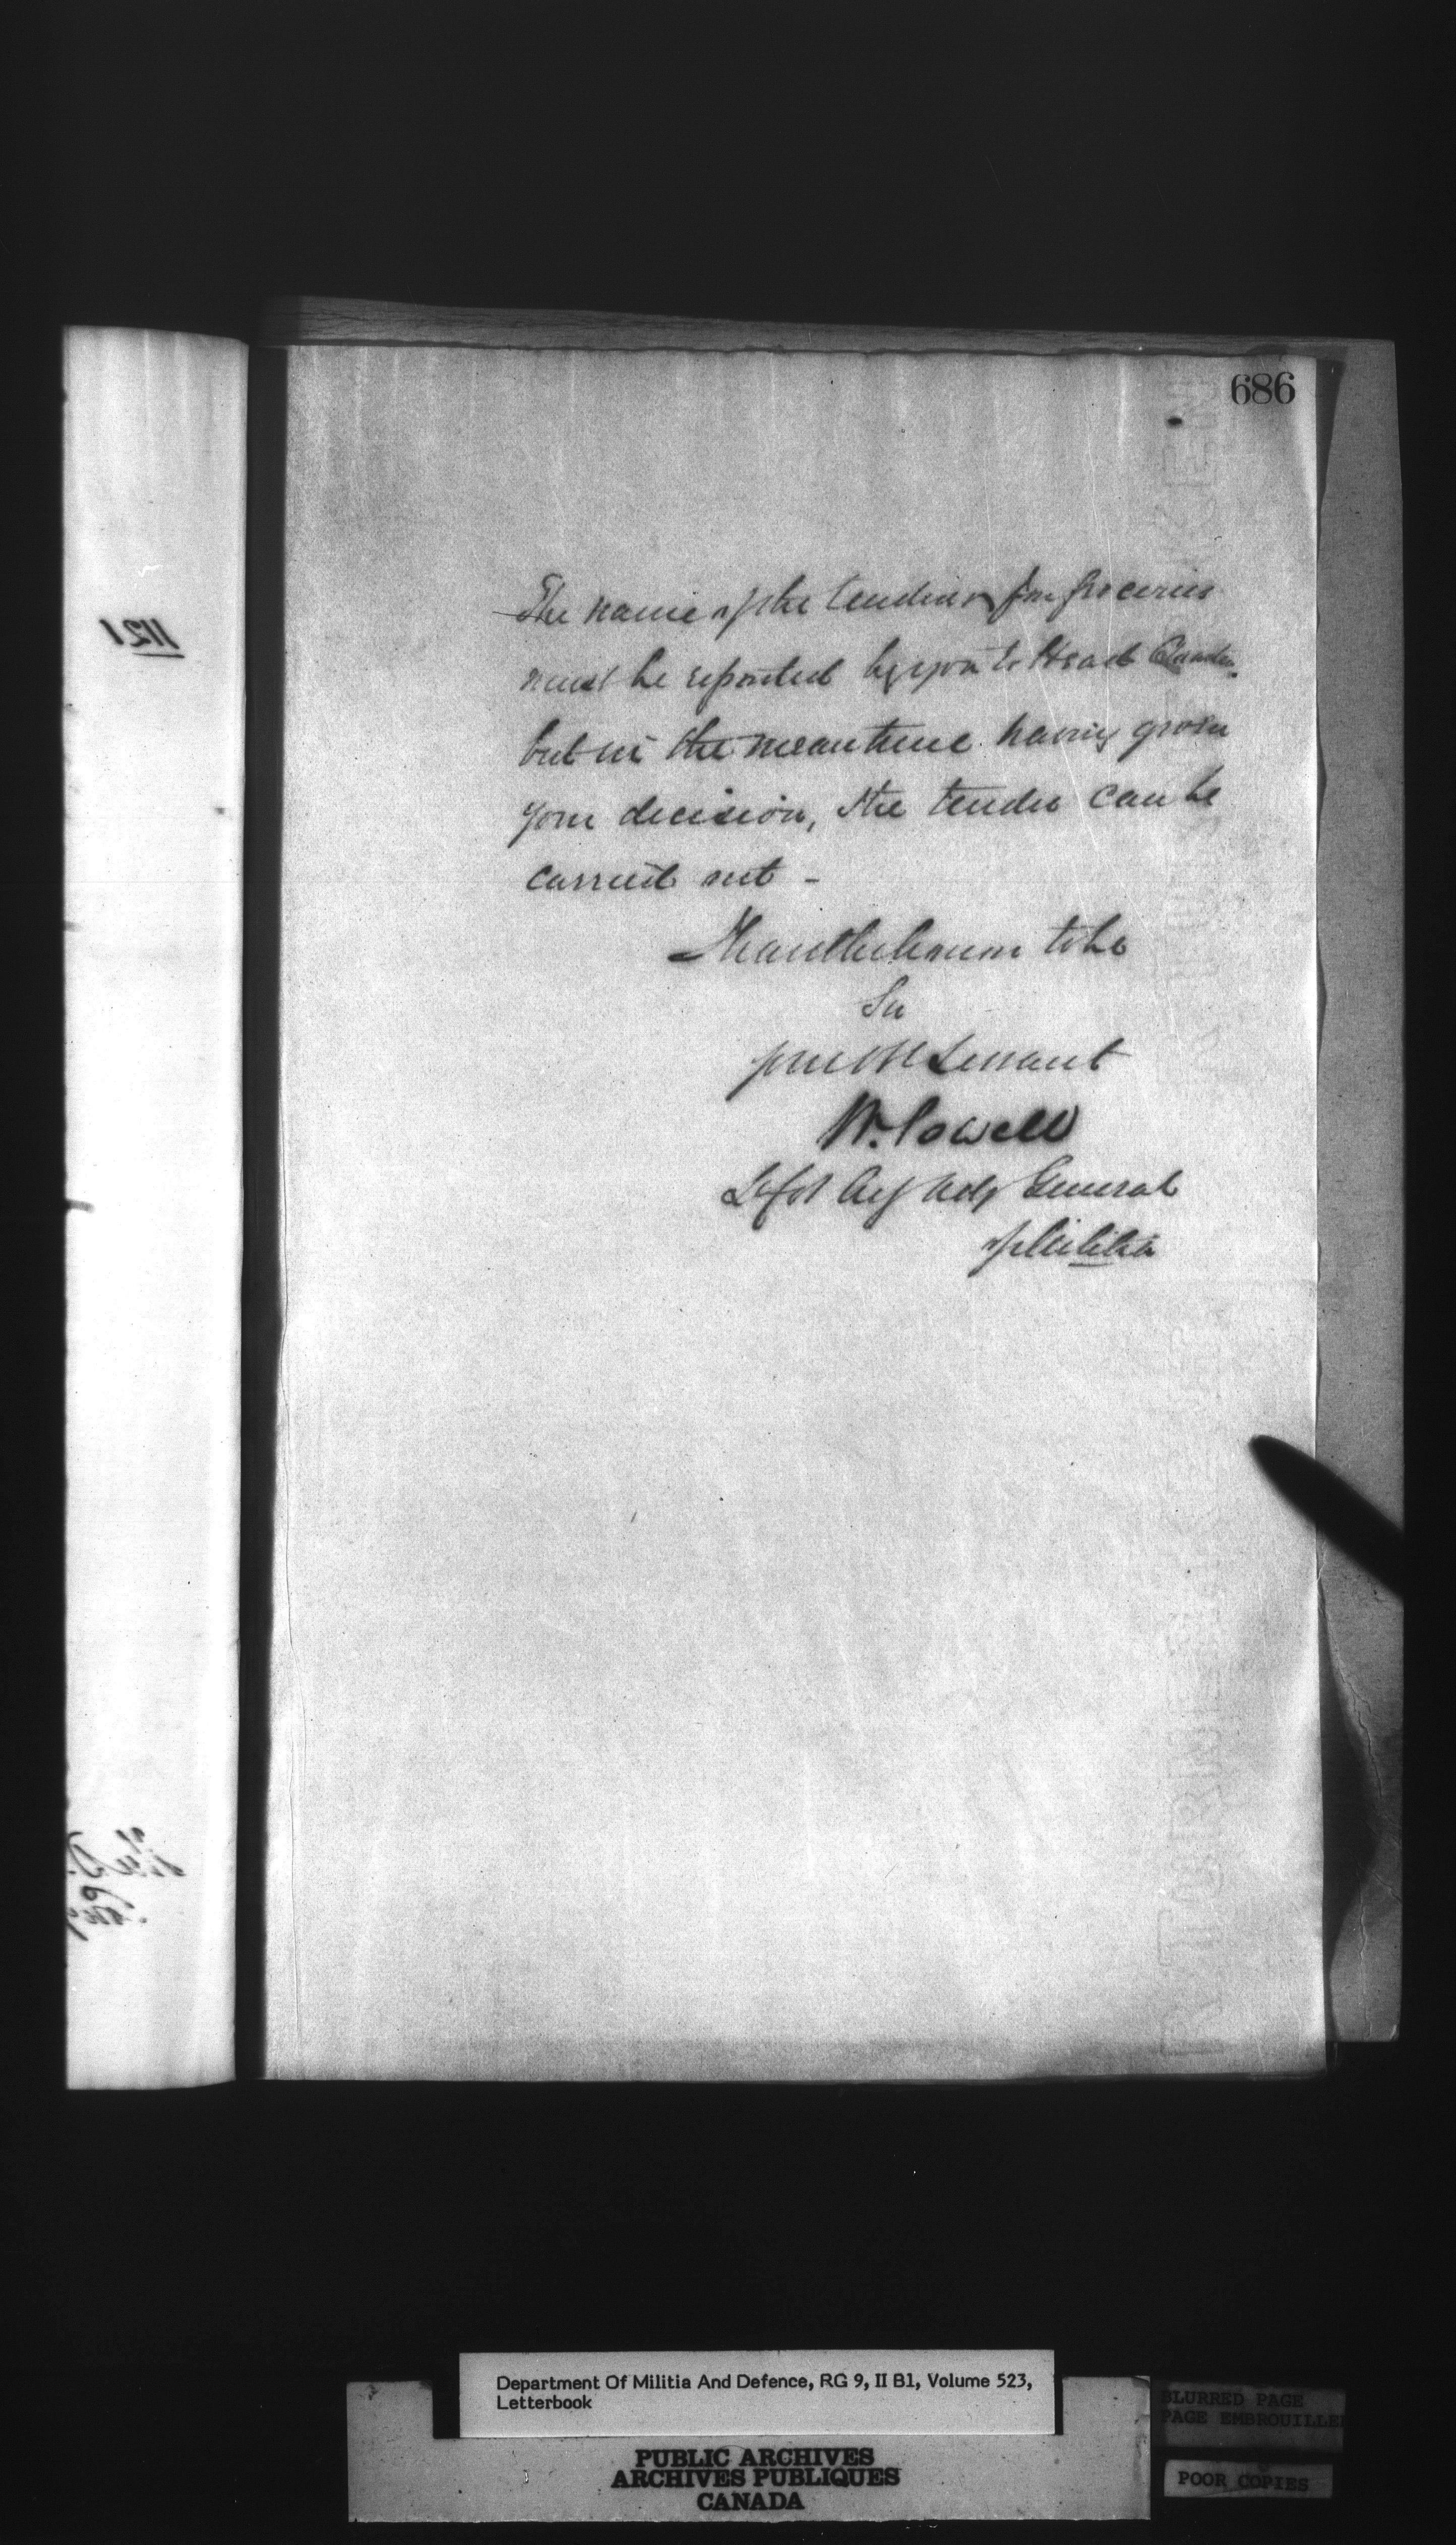 686
1121
The name of the tenderer for groceries
must be reported by you to Head Quarters.
but in the meantime having given
your decision, the tender can be
carried out -
I have the honor to be
Sir
your Ob Servant
W. Powell
Lt Col Actg Adjt General
of Militia
Department Of Militia And Defence, RG 9, II B1, Volume 523,
Letterbook
PUBLIC ARCHIVES
ARCHIVES PUBLIQUES
CANADA
BLURRED PAGE
PAGE EMBROUILLE
POOR COPIES